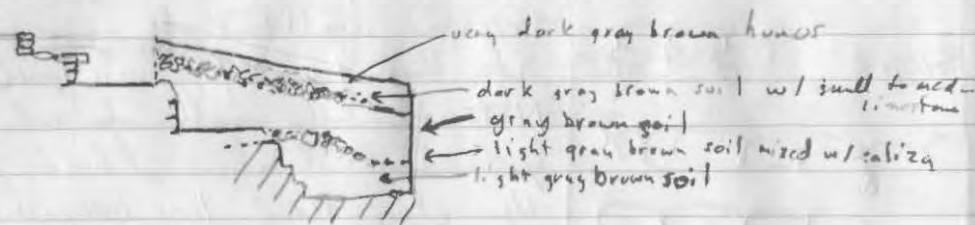 very dark gray brown humus
dark gray brown soil w/ small to med
limestone
gray brown soil
light gray brown soil mixed w/ caliza
light gray brown soil